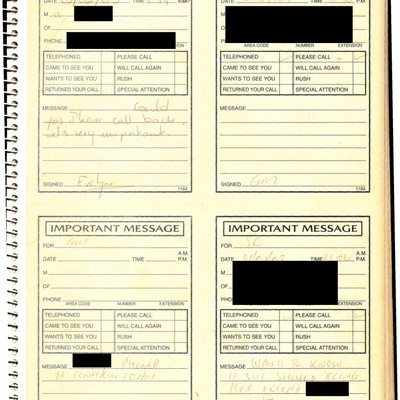 DATE
M
OF
PHONE
AREA CODE NUMBER EXTENSION
TELEPHONED PLEASE CALL
CAME TO SEE YOU WILL CALL AGAIN
WANTS TO SEE YOU RUSH
RETURNED YOUR CALL SPECIAL ATTENTION
MESSAGE Could
you Please call back,
it's very important.
SIGNED Evelyne
1184
P.M.
PHONE
AREA CODE NUMBER EXTENSION
TELEPHONED PLEASE CALL
CAME TO SEE YOU WILL CALL AGAIN
WANTS TO SEE YOU RUSH
RETURNED YOUR CALL SPECIAL ATTENTION
MESSAGE
SIGNED GM
1184
IMPORTANT MESSAGE
FOR
A.M.
DATE TIME P.M.
M
OF
PHONE
AREA CODE NUMBER EXTENSION
TELEPHONED PLEASE CALL
CAME TO SEE YOU WILL CALL AGAIN
WANTS TO SEE YOU RUSH
RETURNED YOUR CALL SPECIAL ATTENTION
MESSAGE PHONED
TO
IMPORTANT MESSAGE
FOR
A.M.
DATE TIME P.M.
M
OF
PHONE
AREA CODE NUMBER EXTENSION
TELEPHONED PLEASE CALL
CAME TO SEE YOU WILL CALL AGAIN
WANTS TO SEE YOU RUSH
RETURNED YOUR CALL SPECIAL ATTENTION
MESSAGE WANTS TO KNOW
IF SHE SHOULD BRING
HER FRIEND